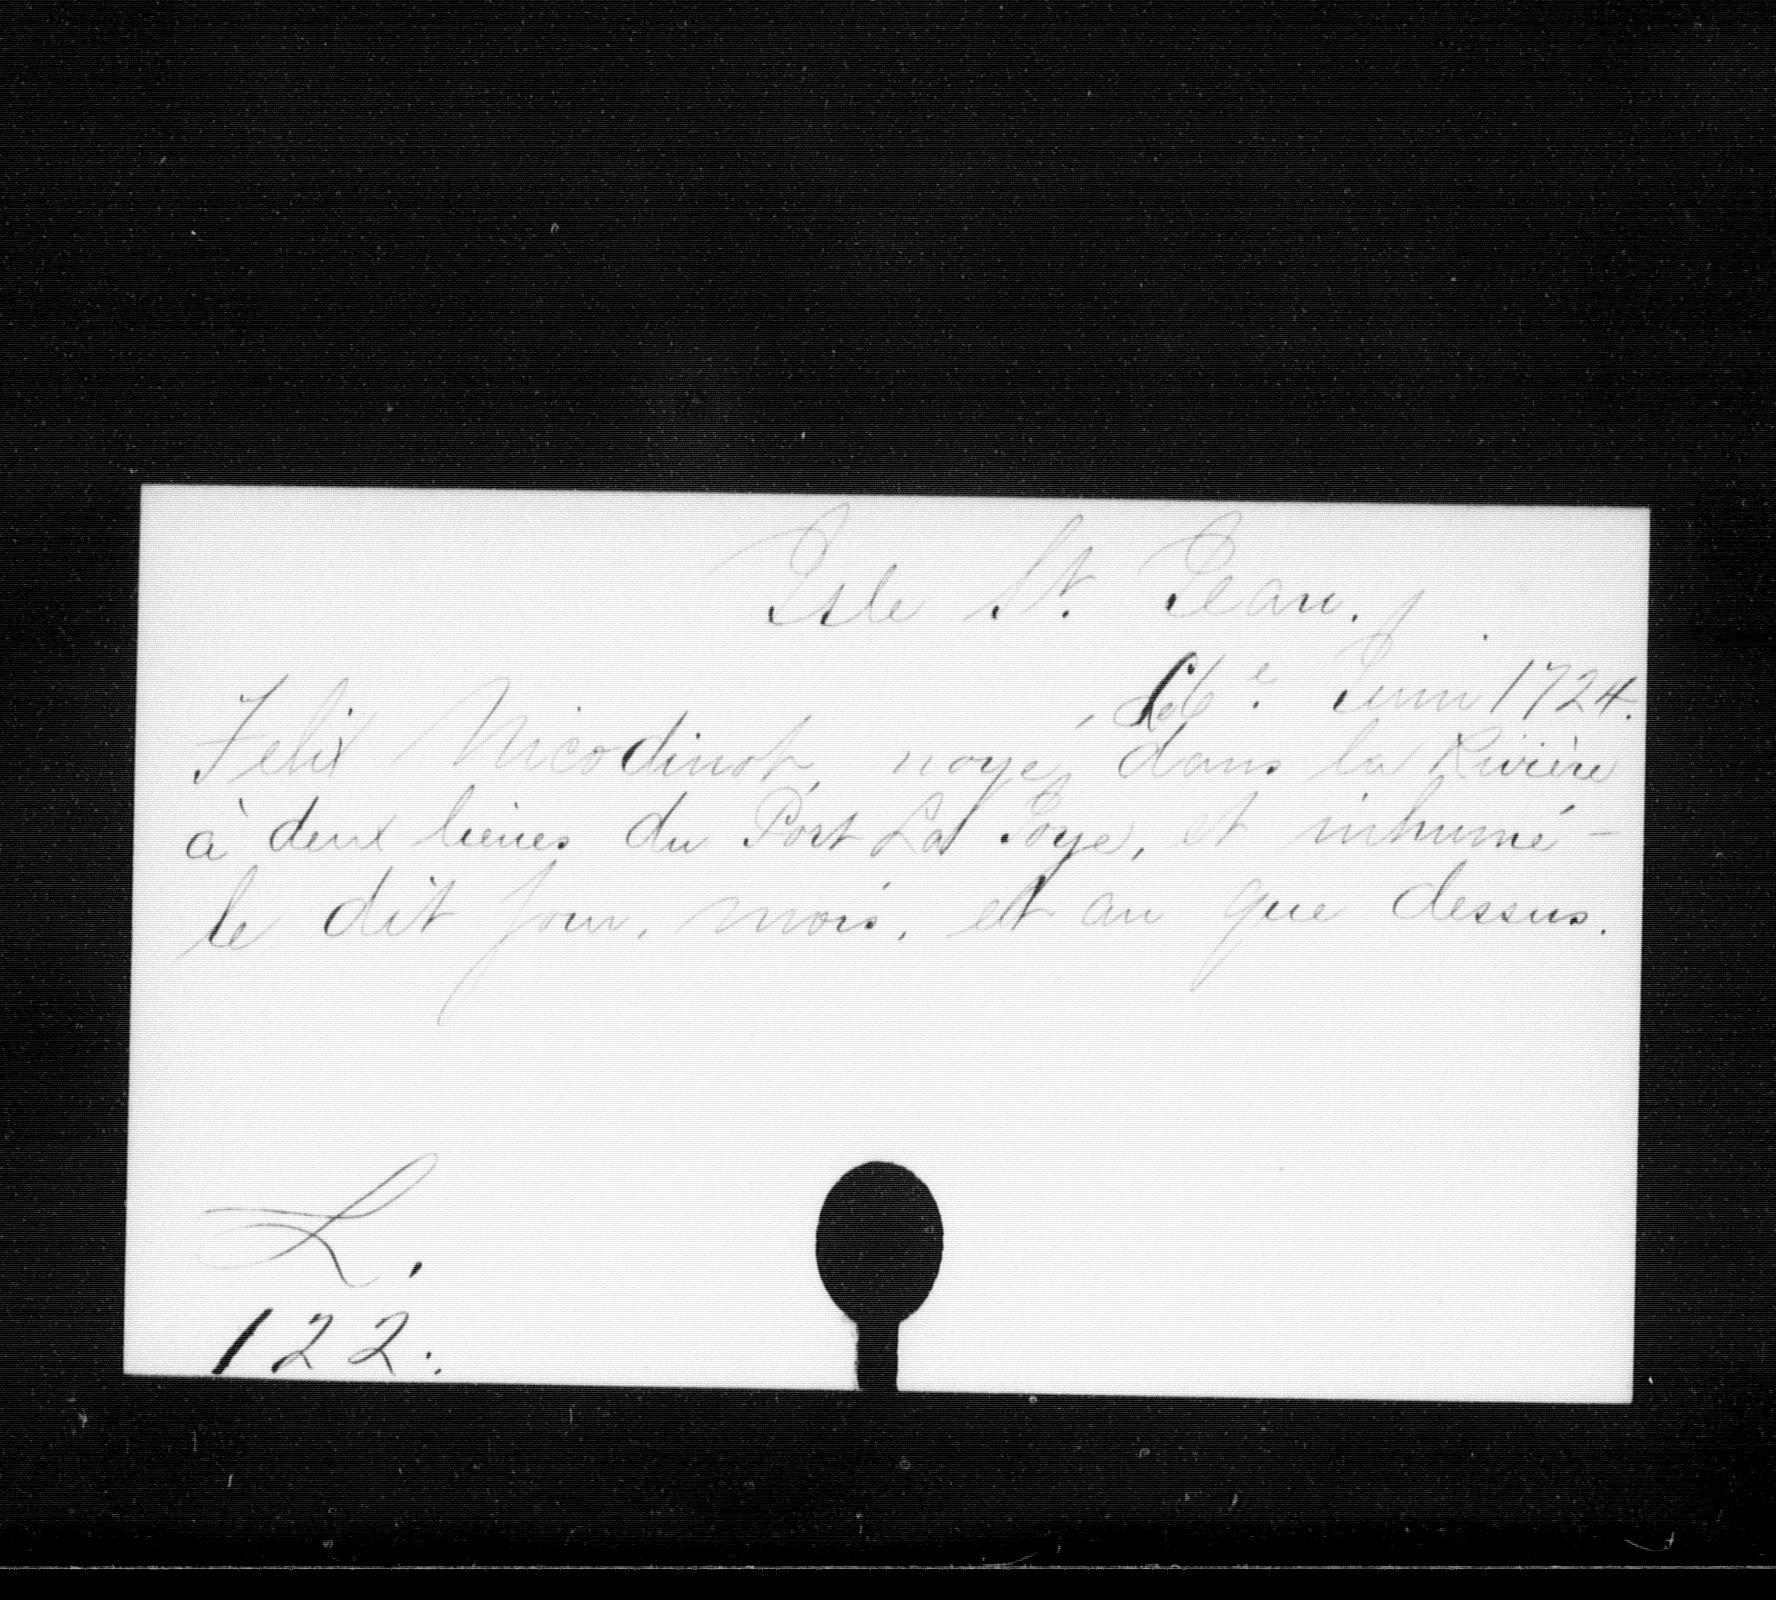 Isle St. Jean.
16e. Juin 1724.
Felix Nicodinot, noyé dans la Rivière
à deux lieues du Port La Joye, et inhumé -
le dit jour, mois, et an que dessus.
L.
122.